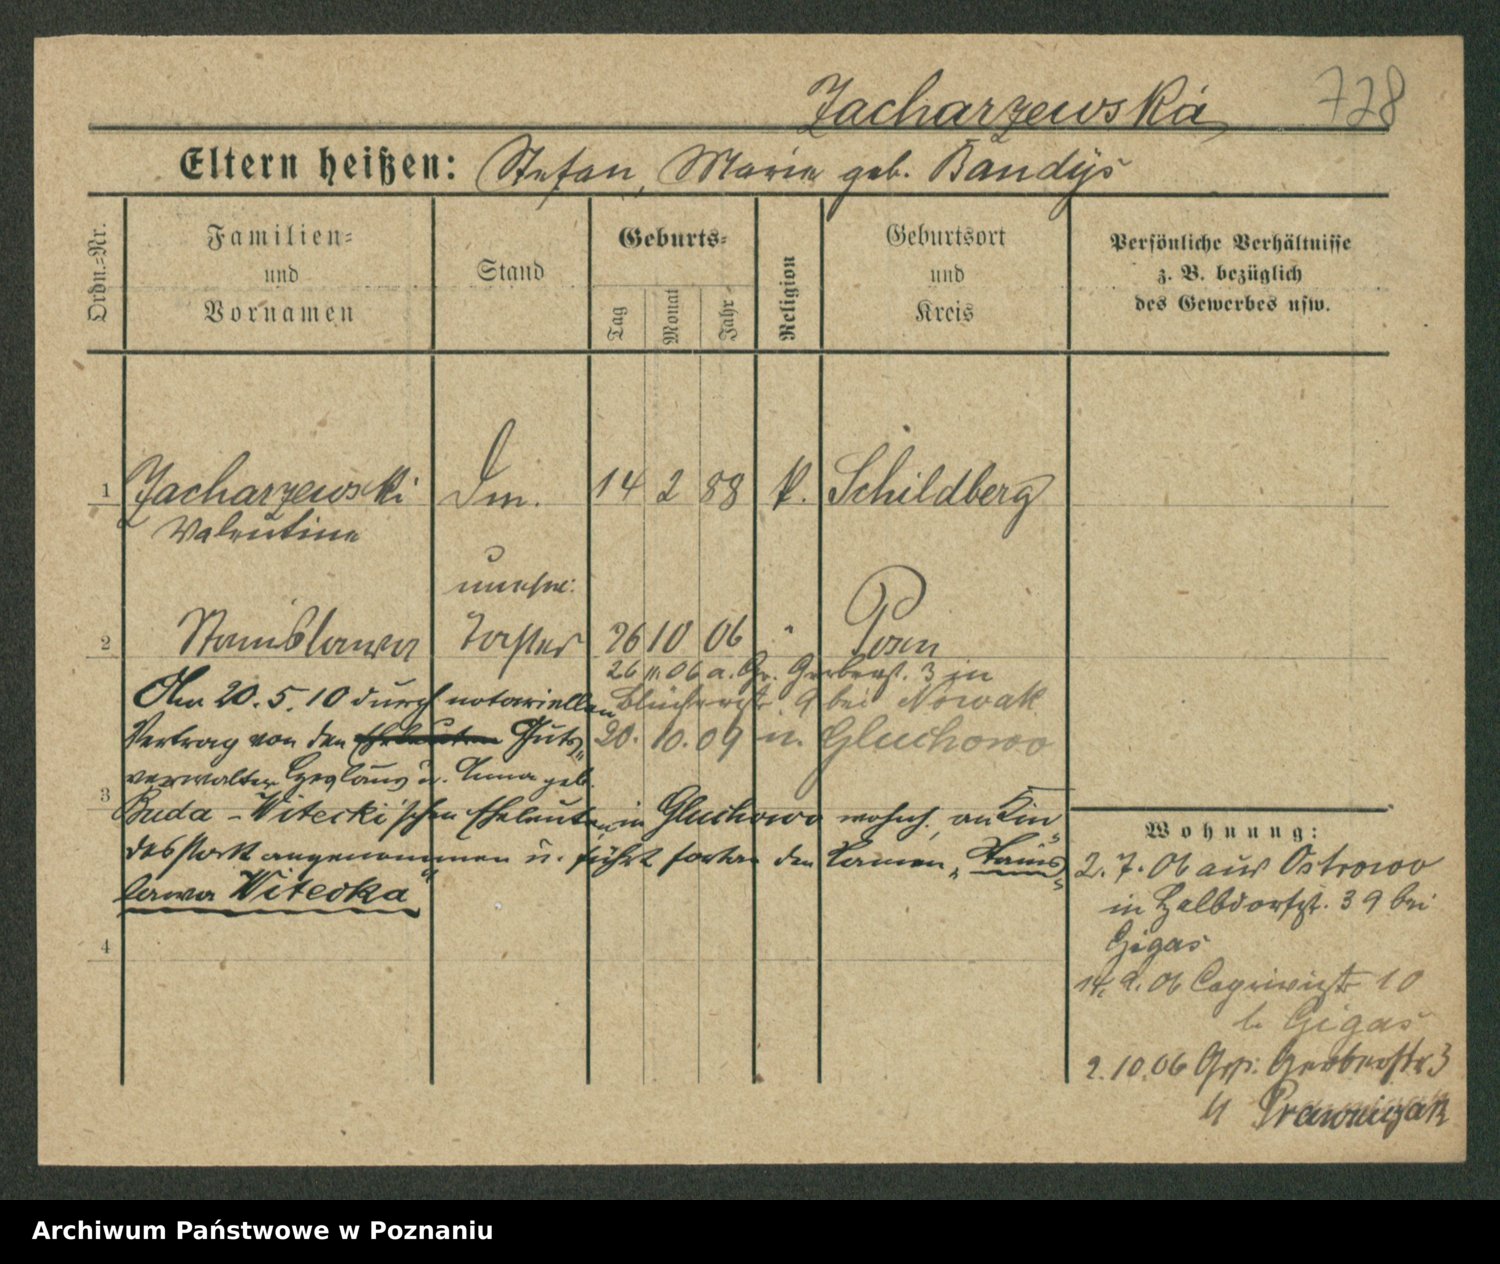 Zacharzewska 728
Eltern heißen: Stefan, Marie geb. Bandys
Ordn.-Nr.
Familien-
und
Vornamen
Stand
Geburts-
Tag
Monat
Jahr
Religion
Geburtsort
und
Kreis
Persönliche Verhältnisse
z. B. bezüglich
des Gewerbes usw.
1 Zacharzewski 14 2 88 k. Schildberg
Valentine
unehel.
2 Stanislawa Tochter 26 10 06 " Posen
26 11. 06 a. Gr. Gerberst. 3 in
Am 20. 5. 10 durch notariellen Blücherstr 9 bei Nowak
Vertrag von den Eheleuten Guts- 20. 10. 09 n. Gluchowo
verwalter u. Anna geb.
3 Buda - Witecki'schen Eheleuten in Gluchowo wohnh., an Kin
desstatt angenommen u. führt fortan den Namen „Stanis
lawa Witecka"
4
Wohnung:
2. 7. 06 aus Ostrowo
in Halbdorfst. 39 bei
Gigas
14. 9. 06 Caprivistr 10
b Gigas
2. 10. 06 Gr. Gerberstr 3